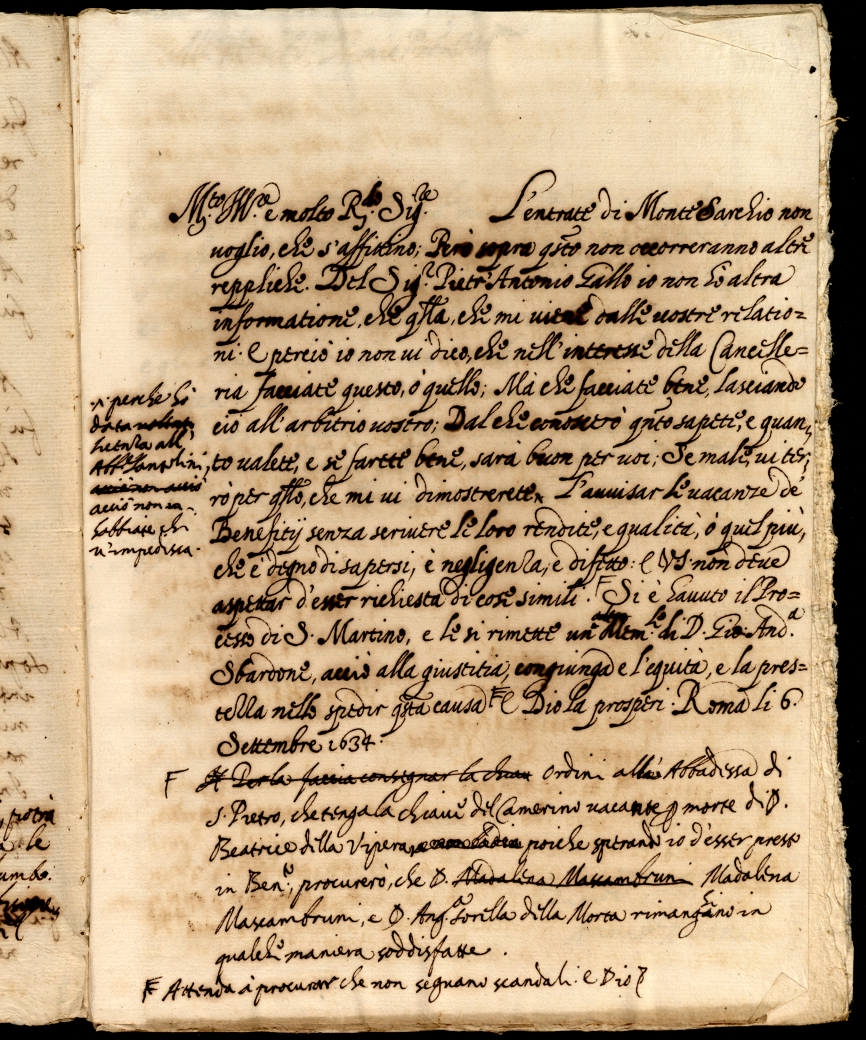 M.to Ill.re e molto R.do Sig.re L'entrate di Monte Sarchio non
voglio, che s'affittino; Però sopra q̃sto non occorreranno altre
repliche. Del Sig.r Pietr'Antonio Gallo io non hò altra
informatione, che q̃lla, che mi viene dalle vostre relatio=
ni. e perciò io non vi dico, che nell'interesse della Cancelle=
ria facciate questo, ò quello; Mà che facciate bene, lasciando
ciò all'arbitrio vostro; Dal che conoscerò q̃nto sapete, e quan=
to valete, e se farete bene, sarà buon per voi; Se male, vi ter=
rò per q̃llo, che mi vi dimostrerete. L'avvisar le vacanze de'
Benefitij senza scrivere le loro rendite, e qualità, ò quel più,
che è degno di sapersi, è negligenza, e difetto: e VS non deve
aspettar d'esser richiesta di cose simili. Si è havuto il Pro=
cesso di S. Martino, e le si rimette un Mem.le di D. Gio: And.a
Sbardone, acciò alla giustitia, congiunga e l'equità, e la pres=
tezza nello spedir q̃sta causa e Dio la prosperi. Roma li 6.
Settembre 1634.
perche hò
data
all'
Abb.e
acciò non
habbiate chi
v'impedisca.
F Per la faccia consegnar la chiave Ordini alla Abbadissa di
S. Pietro, che tenga la chiave del Camerino vacante p morte di D.
Beatrice della Vipera, poiche sperando io d'esser presto
in Ben.o, procurerò, che D. Madalena Mascambruni Madalena
Mascambruni, e D. Ang.a Sorella della Morta rimanghino in
qualche maniera soddisfatte.
F Attenda à procurar che non seguano scandali. e Dio